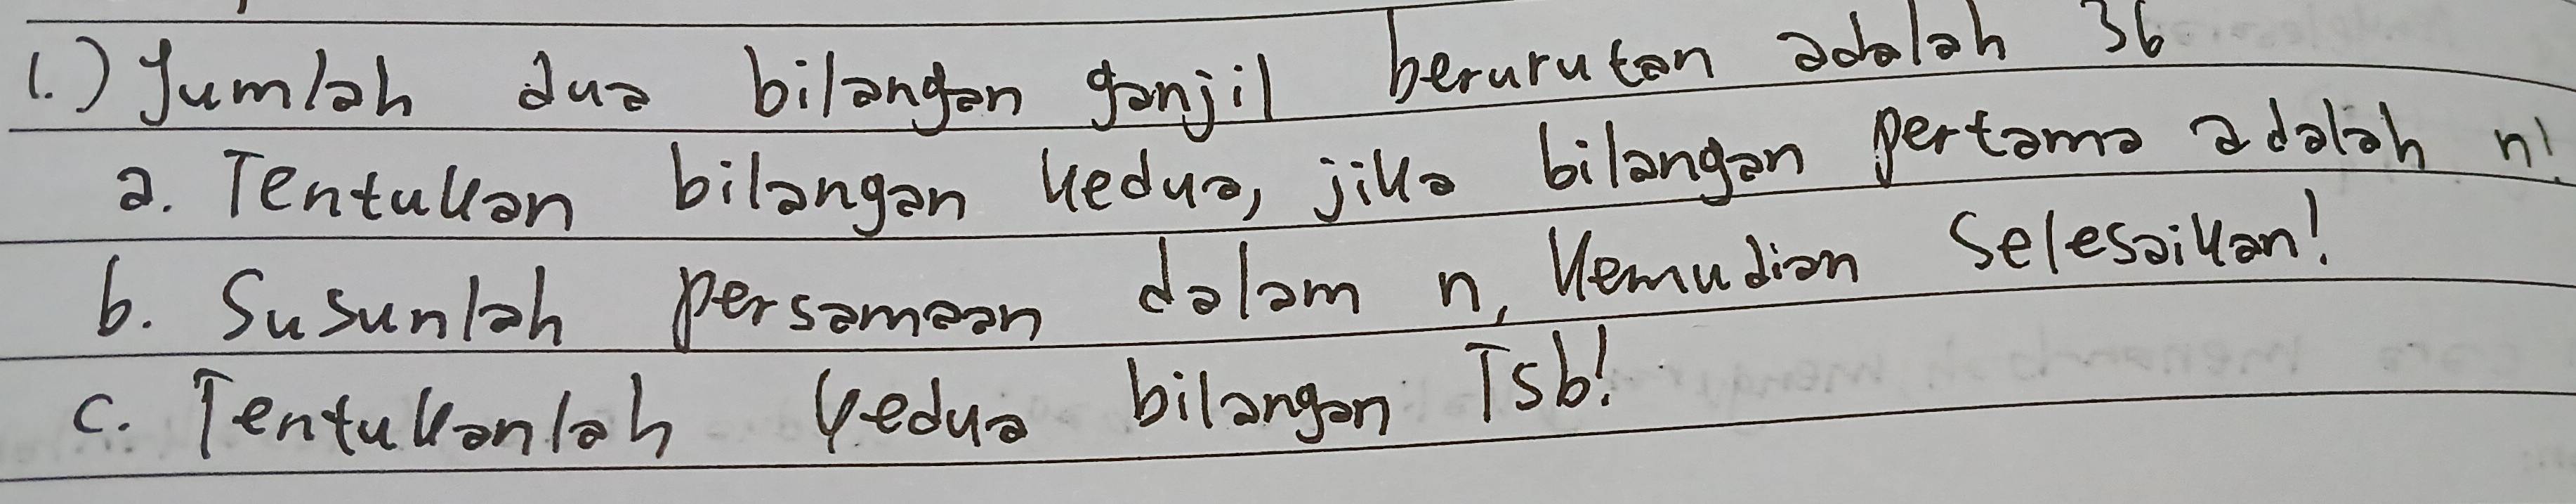 1.) Jumlah dua bilangan ganjil berurutan adalah 36
a. Tentukan bilangan kedua, jika bilangan pertama adalah n!
b. Susunlah persamaan dalam n, kemudian selesaikan!
c. Tentukanlah kedua bilangan Tsb!